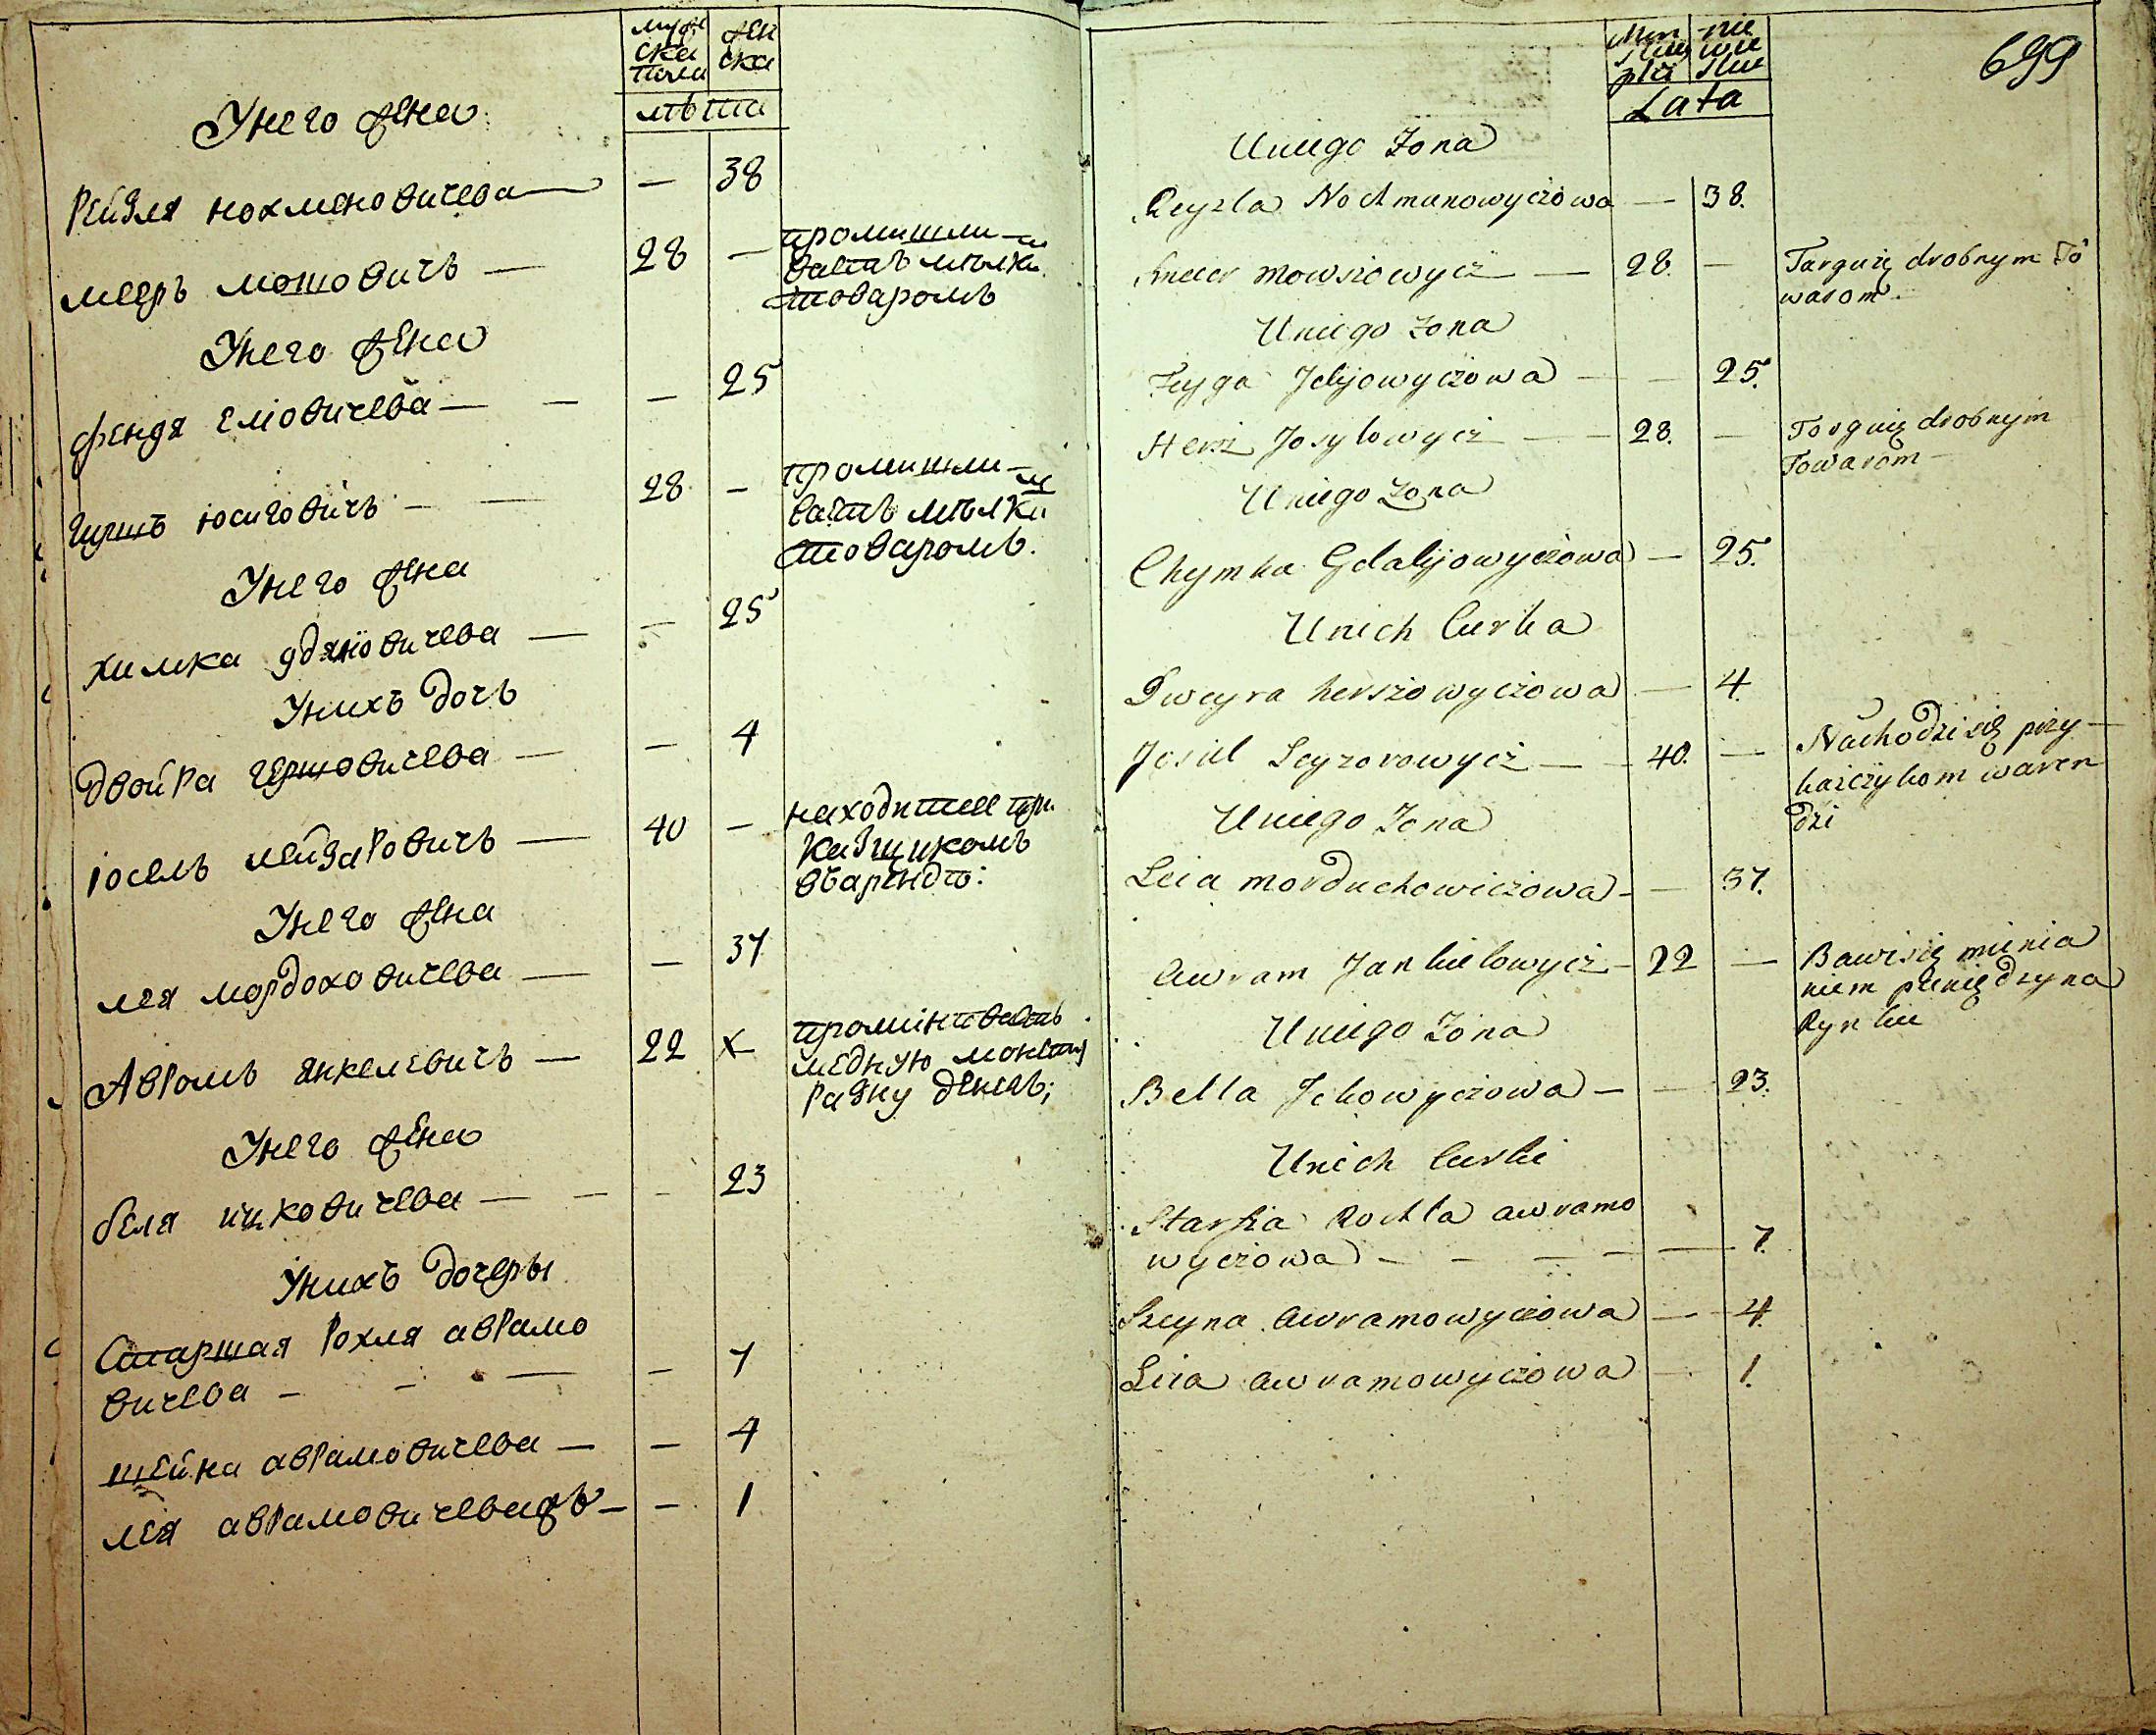 муж
ска
пола
жен
ска
лѣта
Унего жена
Рейзля нохмановичева — — 38
меерь мошовичь — 28 —
промишли-
ваетъ мѣлки
товаромъ
Унего жена
фейдя елiовичева — — — 25
гиршъ юсиговичъ — — 28 —
промишли-
ваетъ мѣлки
товаромъ.
Унего жена
химка gдалiовичева — — 25
Унихъ дочь
двойра гершовичева — — 4
Iосель лейзаровичъ — 40 —
находитце при
кащикомъ
въарендѣ:
Унего жена
лея мордоховичева — — 37
Аврамъ янкелевичъ — 22 х
медную монету
Унего жена
беля ицковичева — — - 23
Унихъ дочеры
Старшая Рохля аврамо
вичева — - — — 7
шейна аврамовичева — — 4
лея аврамовичева — — 1
699
Lata
Uniego Zona
Reyzla Nochmanowyczowa — 38.
Meer Mowszowycz — 28. —
Targuię drobnym To
warom.
Uniego Zona
Feyga Jelijowyczowa — — 25.
Hersz Josylowycz — — 28. —
Torguię drobnym
Towarom —
Uniego Zona
Chymka Gdalijowyczowa — 25.
Unich Curka
Dweyra herszowyczowa — 4.
Josiel Leyzorowycz — — 40. —
Nachodzi się przy—
kaszczykom waren
dzi
Uniego Zona
Leia Morduchowiczowa — — 37.
Awram Jankielowycz — 22 —
Bawi się mienia
niem pieniędzy na
Rynku
Uniego Zona
Bella Ickowyczowa — — 23.
Unich Curki
Starsza Rochla awramo
wyczowa — — — — — 7.
Szeyna Awramowyczowa — — 4.
Leia awramowyczowa — 1.